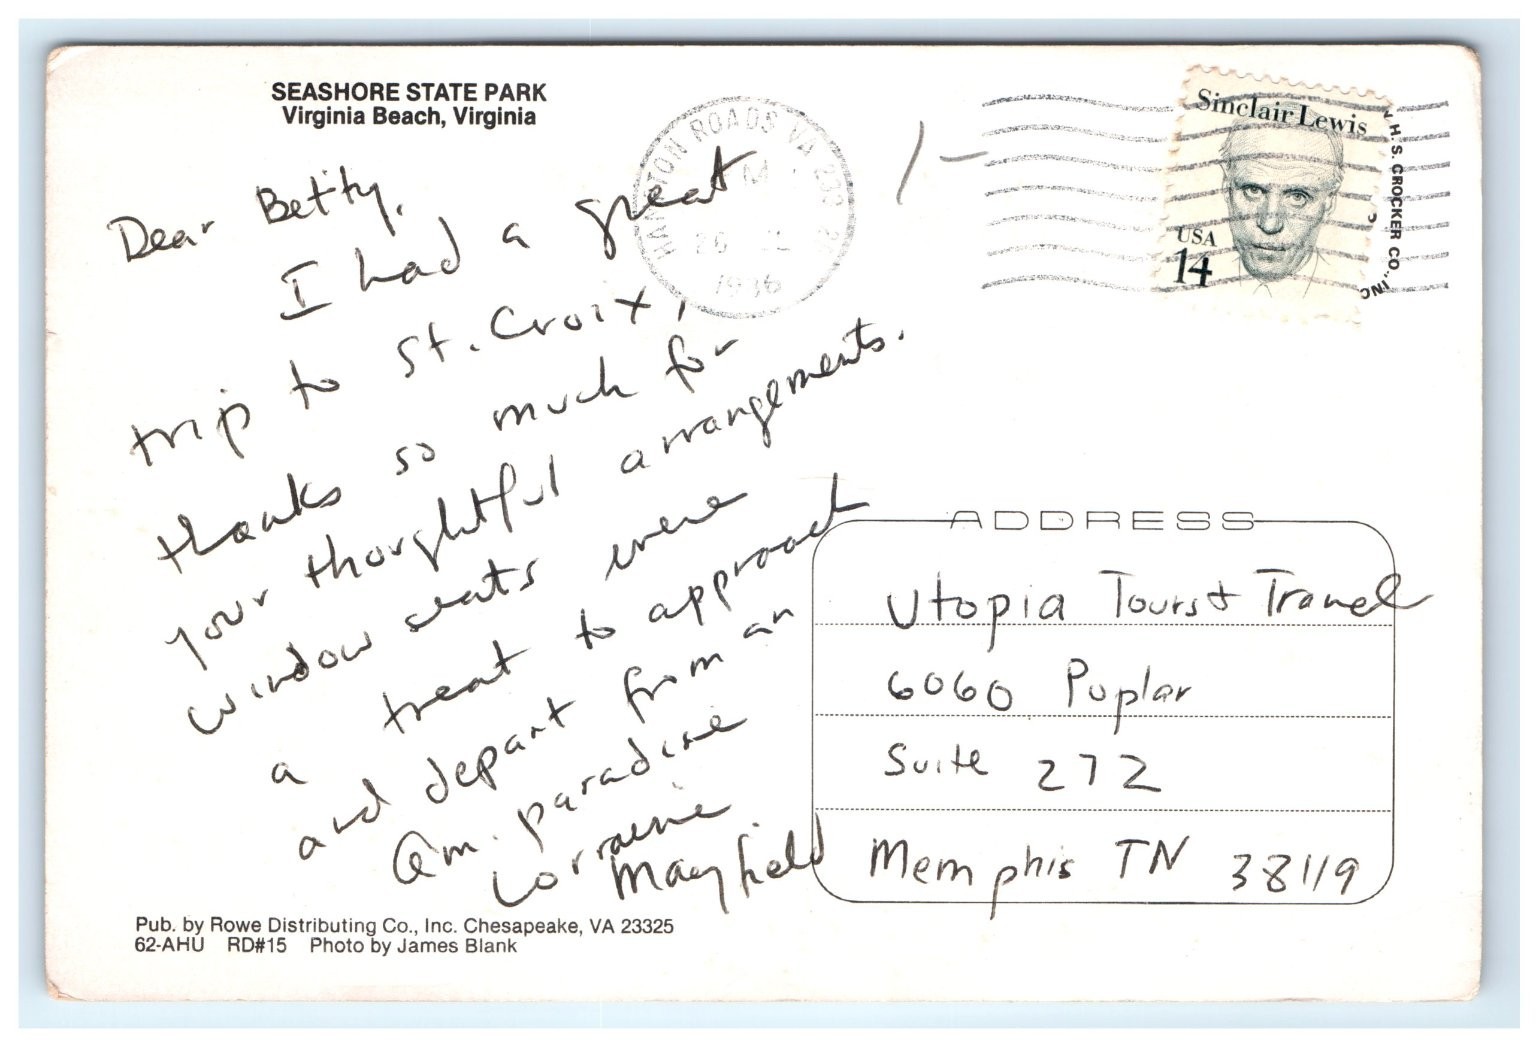 SEASHORE STATE PARK
Virginia Beach, Virginia
Dear Betty,
I had a great
trip to St. Croix,
thanks so much for
your thoughtful arrangements.
window seats were
a treat to approach
and depart from an
Am. paradise
Lorraine
Mayfield
Pub. by Rowe Distributing Co., Inc. Chesapeake, VA 23325
62-AHU RD#15 Photo by James Blank
HAMPTON ROADS VA
26
1986
Sinclair Lewis
USA
14
H.S. CROCKER CO., INC
ADDRESS
Utopia Tours & Travel
6060 Poplar
Suite 272
Memphis TN 38119